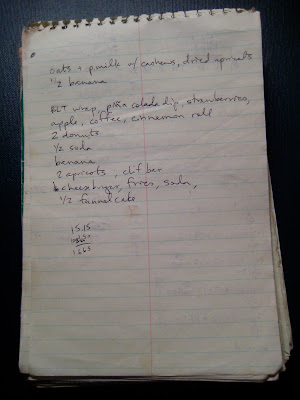 oats + p.milk w/ cashews, dried apricots
1/2 banana
BLT wrap, piña colada dip, strawberries,
apple, coffee, cinnamon roll
2 donuts
1/2 soda
banana
2 apricots, clif bar
cheeseburger, fries, soda,
1/2 funnel cake
15.15